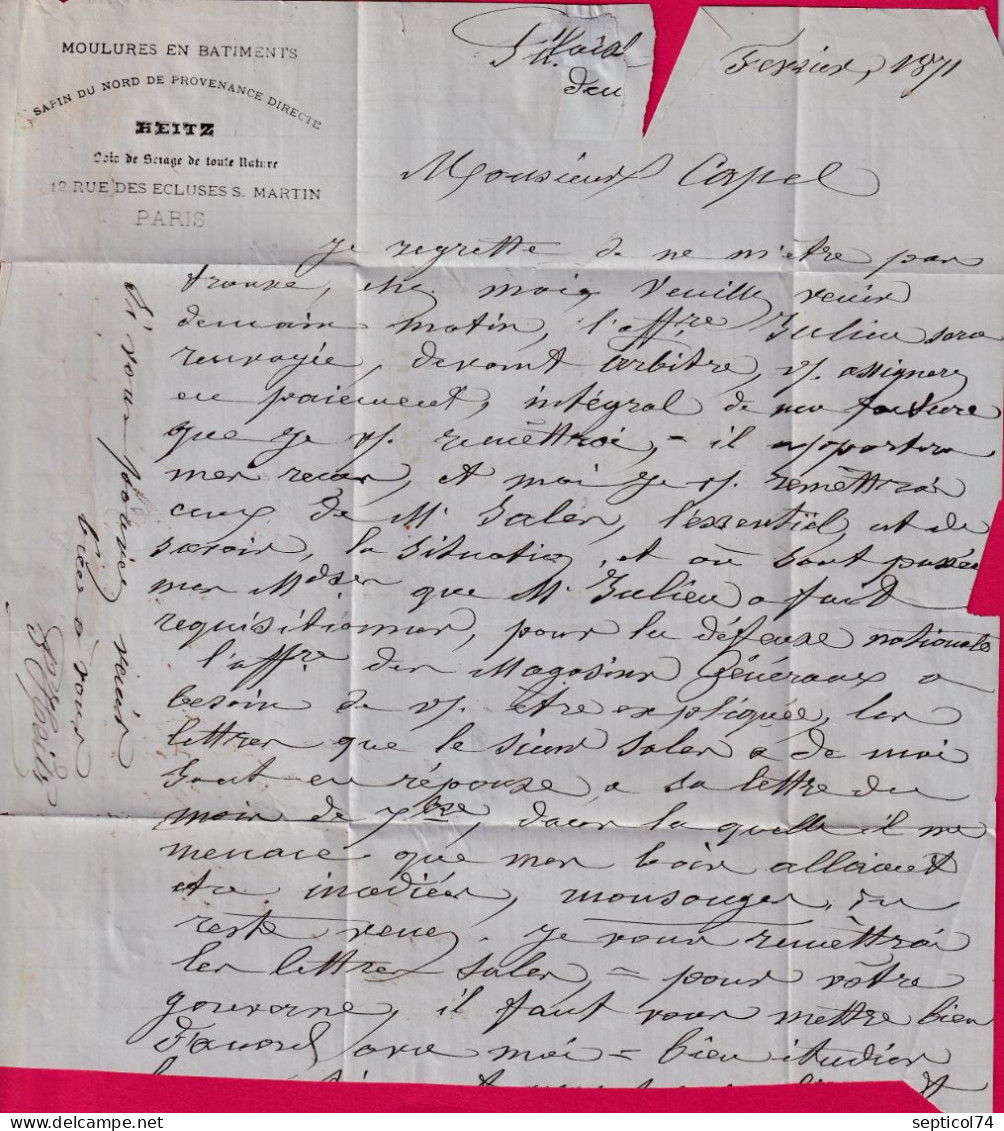 MOULURES EN BATIMENTS
SAPIN DU NORD DE PROVENANCE DIRECTE
HEITZ
Bois de Sciage de toute Nature
12 RUE DES ECLUSES S. MARTIN
PARIS
Février, 1871
Monsieur Capel
Je regrette de ne m'être pas
trouvé, chez moi, Veuillez venir
demain matin, l'affre Julien sera
renvoyée, devant arbitre, v/. assignerez
en paiement, intégral de ma facture
que je v/. remettrai, = il apportera
mes recus, et moi je v/. remettrai
ceux de Mr Saler, l'essentiel est de
savoir, la situation, et où sont passées
mes Mdses que Mr Julien a fait
requisitionner, pour la défense nationale
l'affre des Magasins Généraux a
besoin de v/. être expliquée, les
lettres que le sieur Saler a de moi
sont en réponse, a sa lettre du
mois de 7bre, dans la quelle il me
menace que mes bois allaient
être incendiés, mensonges, du
reste venez. je vous remettrai
les lettres Saler, = pour votre
gouverne, il faut vous mettre bien
d'accord avec moi = bien étudier
Si vous pouviez venir